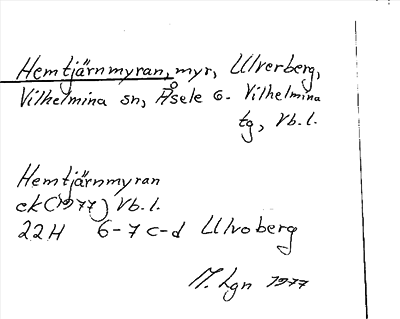 Hemtjärnmyran, myr, Ulverberg,
Vilhelmina sn, Åsele o. Vilhelmina
tg, Vb.l.
Hemtjärnmyran
ek (1977) Vb.l.
22H 6-7 c-d Ulvoberg
M. Lgn 1977